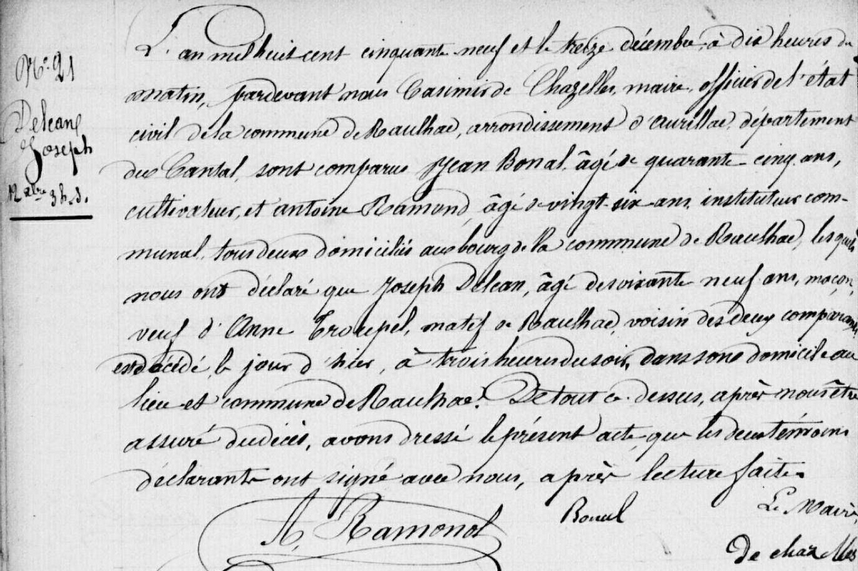 N° 21
Deleans
Joseph
12 xbre 3 h. s.
L'an mil huit cent cinquante neuf et le treize décembre, à dix heures du
matin, pardevant nous Casimir de Chazelles, maire, officier de l'état
civil de la commune de Raulhac, arrondissement d'aurillac, département
du Cantal, sont comparus Jean Bonal, âgé de quarante cinq ans,
cultivateur, et antoine Ramond, âgé de vingt six ans, instituteur com-
munal, tous deux domiciliés au bourg de la commune de Raulhac, lesquels
nous ont déclaré que Joseph Delean, âgé de soixante neuf ans, maçon,
veuf d'Anne Troupel, natif de Raulhac, voisin des deux comparants,
est décédé, le jour d'hier, à trois heures du soir, dans son domicile au
lieu et commune de Raulhac. De tout ce dessus, après nous être
assuré du décès, avons dressé le présent acte, que les deux témoins
déclarants ont signé avec nous, après lecture faite.
A. Ramond
Bonal
Le Maire
De chazelles